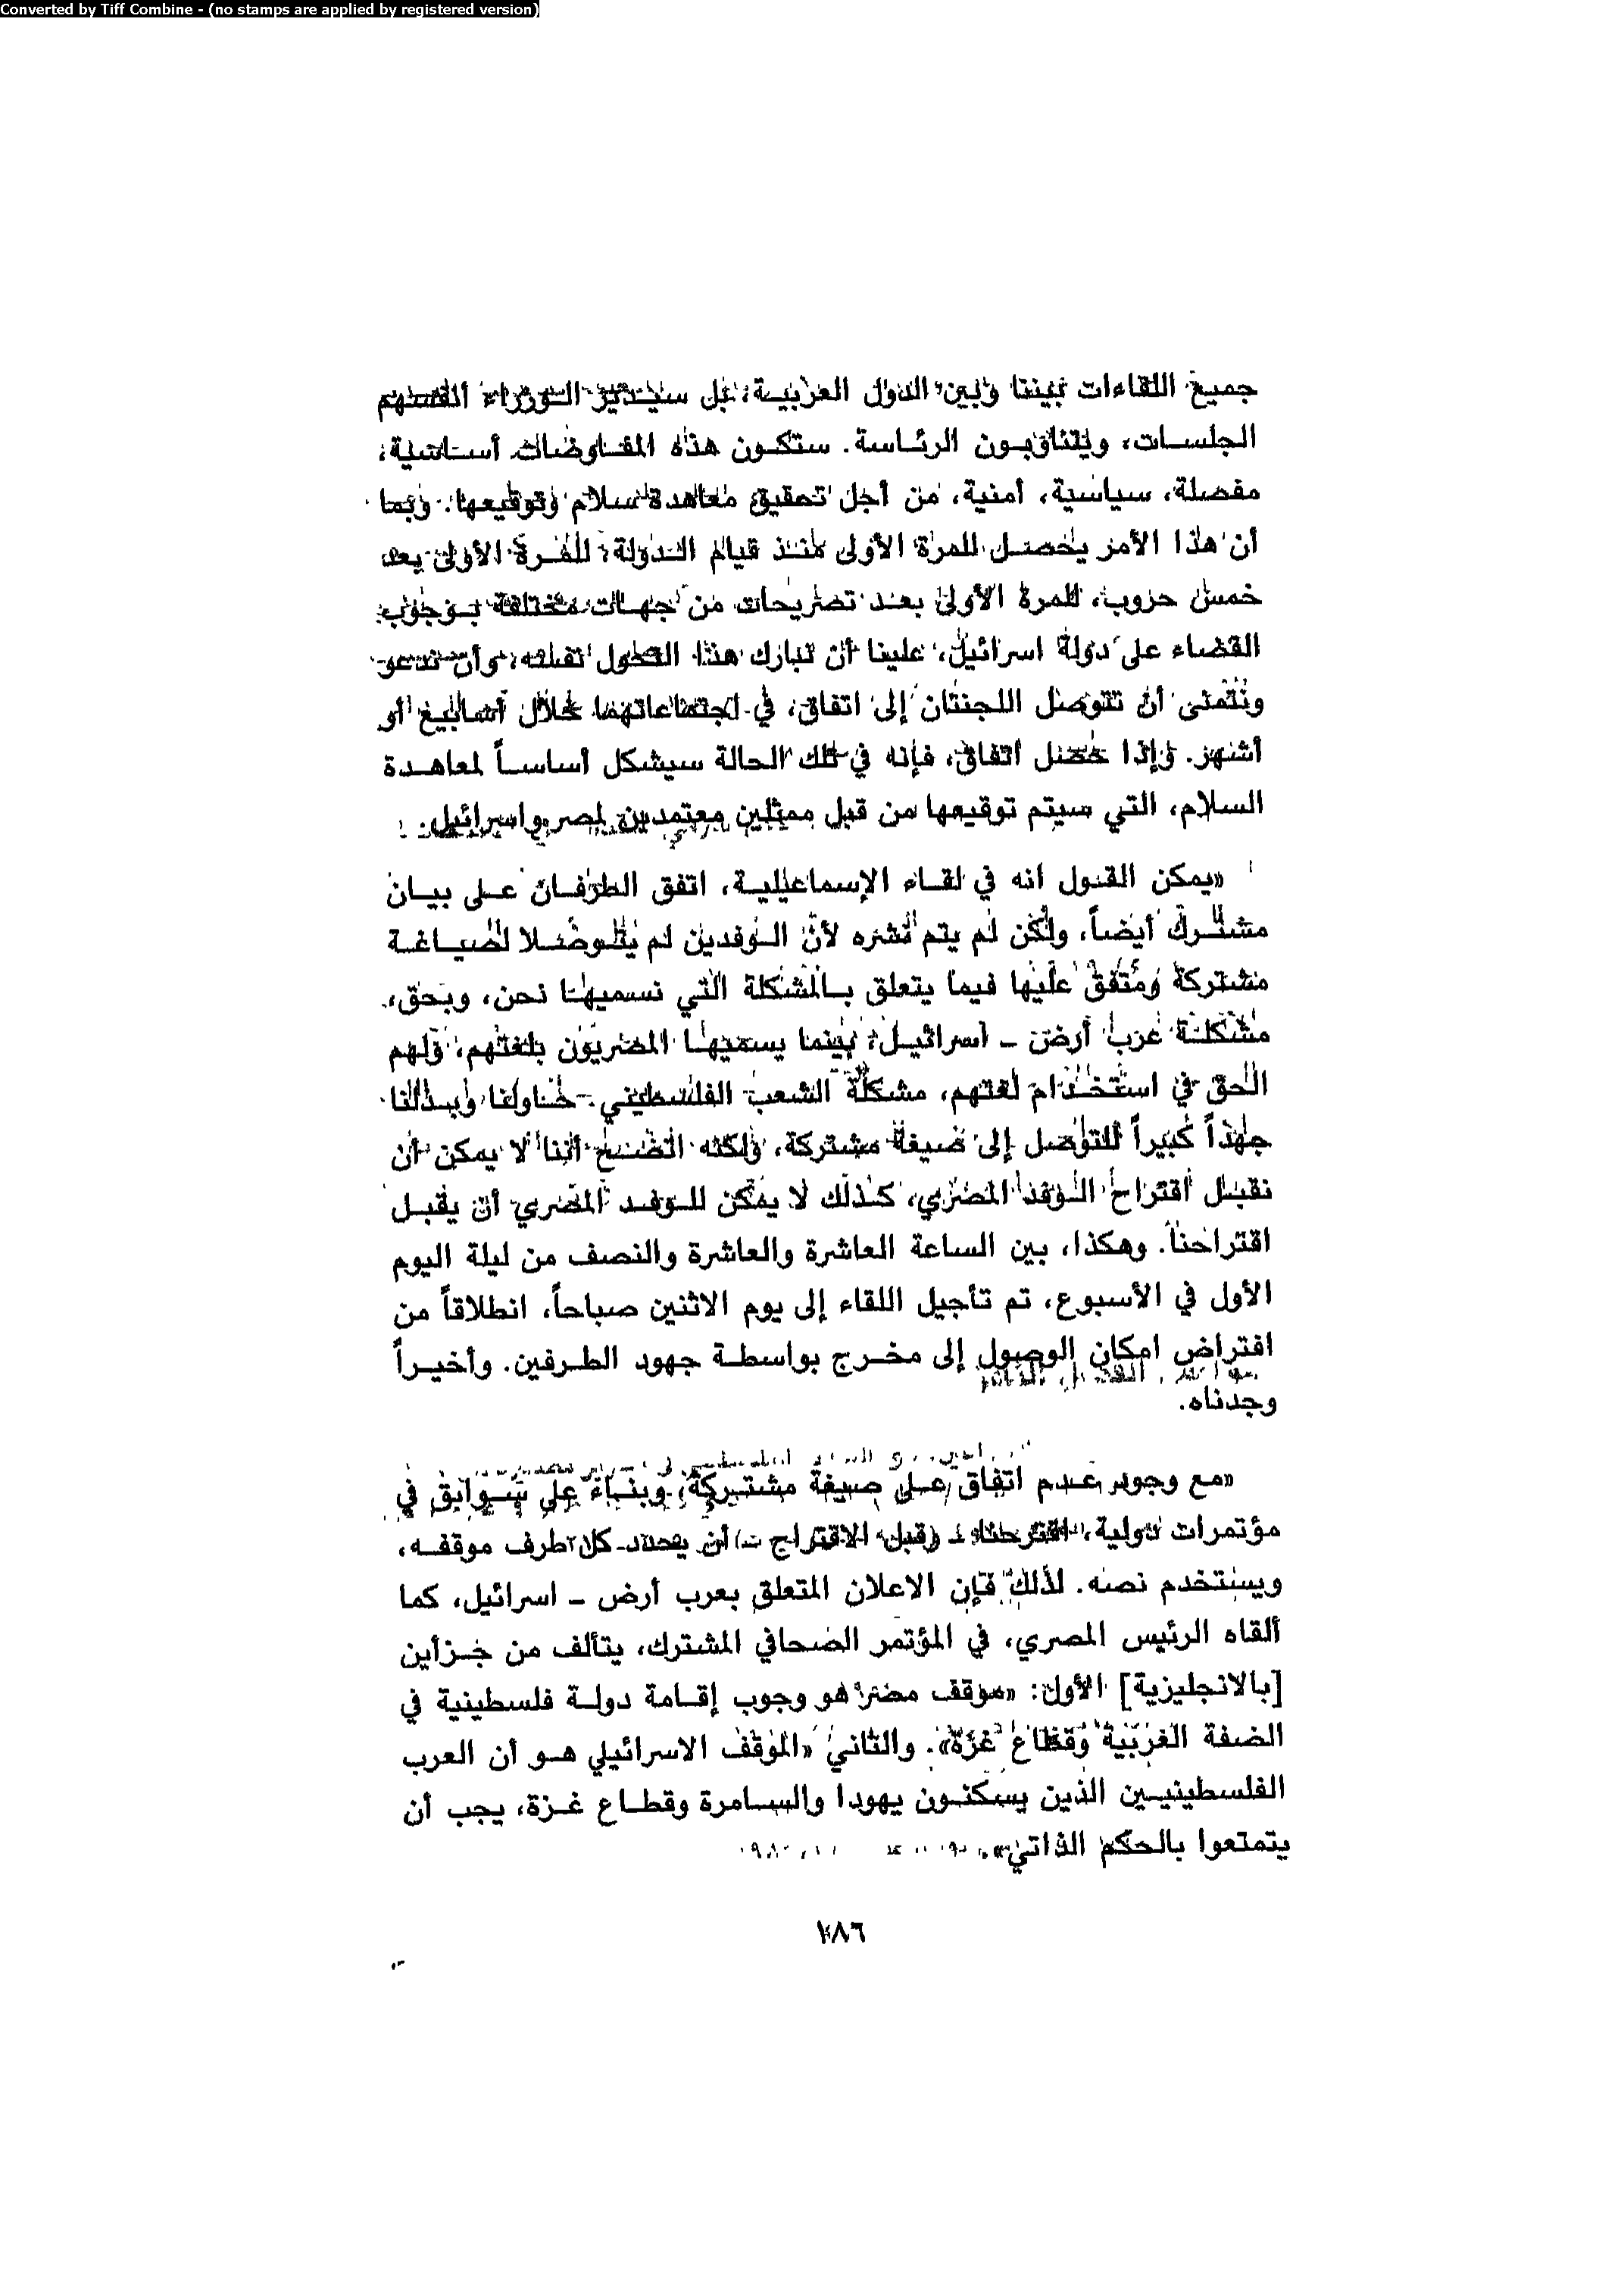 Converted by Tiff Combine - (no stamps are applied by registered version)
جميع اللقاءات بيننا وبين الدول العربية، بل سيدير الوزراء أنفسهم
الجلسات، ويتناوبون الرئاسة. ستكون هذه المفاوضات أساسية،
مفصلة، سياسية، أمنية، من أجل تحقيق معاهدة سلام وتوقيعها. وبما
أن هذا الأمر يحصل للمرة الأولى منذ قيام الدولة، للمرة الأولى بعد
خمس حروب، للمرة الأولى بعد تصريحات من جهات مختلفة بوجوب
القضاء على دولة اسرائيل، علينا أن نبارك هذا التحول نفسه، وأن ندعو
ونتمنى أن تتوصل اللجنتان إلى اتفاق، في اجتماعاتهما خلال أسابيع أو
أشهر. وإذا حصل اتفاق، فإنه في تلك الحالة سيشكل أساساً لمعاهدة
السلام، التي سيتم توقيعها من قبل ممثلين معتمدين لمصر واسرائيل.
«يمكن القول انه في لقاء الإسماعيلية، اتفق الطرفان على بيان
مشترك أيضاً، ولكن لم يتم نشره لأن الوفدين لم يتوصلا لصياغة
مشتركة ومتفق عليها فيما يتعلق بالمشكلة التي نسميها نحن، وبحق،
مشكلة عرب أرض - اسرائيل، بينما يسميها المصريون بلغتهم، ولهم
الحق في استخدام لغتهم، مشكلة الشعب الفلسطيني. حاولنا وبذلنا
جهداً كبيراً للتوصل إلى صيغة مشتركة، ولكنه اتضح أننا لا يمكن أن
نقبل اقتراح الوفد المصري، كذلك لا يمكن للوفد المصري أن يقبل
اقتراحنا. وهكذا، بين الساعة العاشرة والعاشرة والنصف من ليلة اليوم
الأول في الأسبوع، تم تأجيل اللقاء إلى يوم الاثنين صباحاً، انطلاقاً من
افتراض امكان الوصول إلى مخرج بواسطة جهود الطرفين. وأخيراً
وجدناه.
«مع وجود عدم اتفاق على صيغة مشتركة، وبناء على سوابق في
مؤتمرات دولية، اقترحنا - (قبل الاقتراح -) أن يحدد كل طرف موقفه،
ويستخدم نصه. لذلك فإن الاعلان المتعلق بعرب أرض - اسرائيل، كما
ألقاه الرئيس المصري، في المؤتمر الصحافي المشترك، يتألف من جزأين
[بالانجليزية] الأول: «موقف مصر هو وجوب إقامة دولة فلسطينية في
الضفة الغربية وقطاع غزة». والثاني «الموقف الاسرائيلي هو أن العرب
الفلسطينيين الذين يسكنون يهودا والسامرة وقطاع غزة، يجب أن
يتمتعوا بالحكم الذاتي».
١٨٦